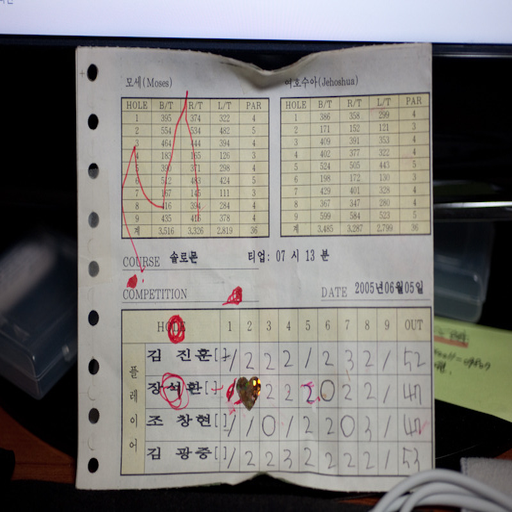 모세(Moses)
여호수아(Jehoshua)
HOLE B/T R/T L/T PAR
1 395 374 322 4
2 554 534 482 5
3 464 444 394 4
4 165 126 3
5 371 298 4
6 424 5
7 167 145 111 3
8 416 394 284 4
9 435 416 378 4
계 3,516 3,326 2,819 36
HOLE B/T R/T L/T PAR
1 386 358 299 4
2 171 152 121 3
3 409 391 353 4
4 402 377 322 4
5 524 505 443 5
6 198 172 130 3
7 429 401 328 4
8 367 347 280 4
9 599 584 523 5
계 3,485 3,287 2,799 36
COURSE 솔로몬 티업: 07 시 13 분
COMPETITION DATE 2005년06월05일
HOLE 1 2 3 4 5 6 7 8 9 OUT
플레이어
김 진훈[+] 1 2 2 2 1 2 3 2 1 52
장석환[+] 2 2 2 0 2 2 1 47
조 창현[ ] 1 1 0 1 2 2 0 3 1 47
김 광중[ ] 1 2 2 3 2 2 2 2 1 53